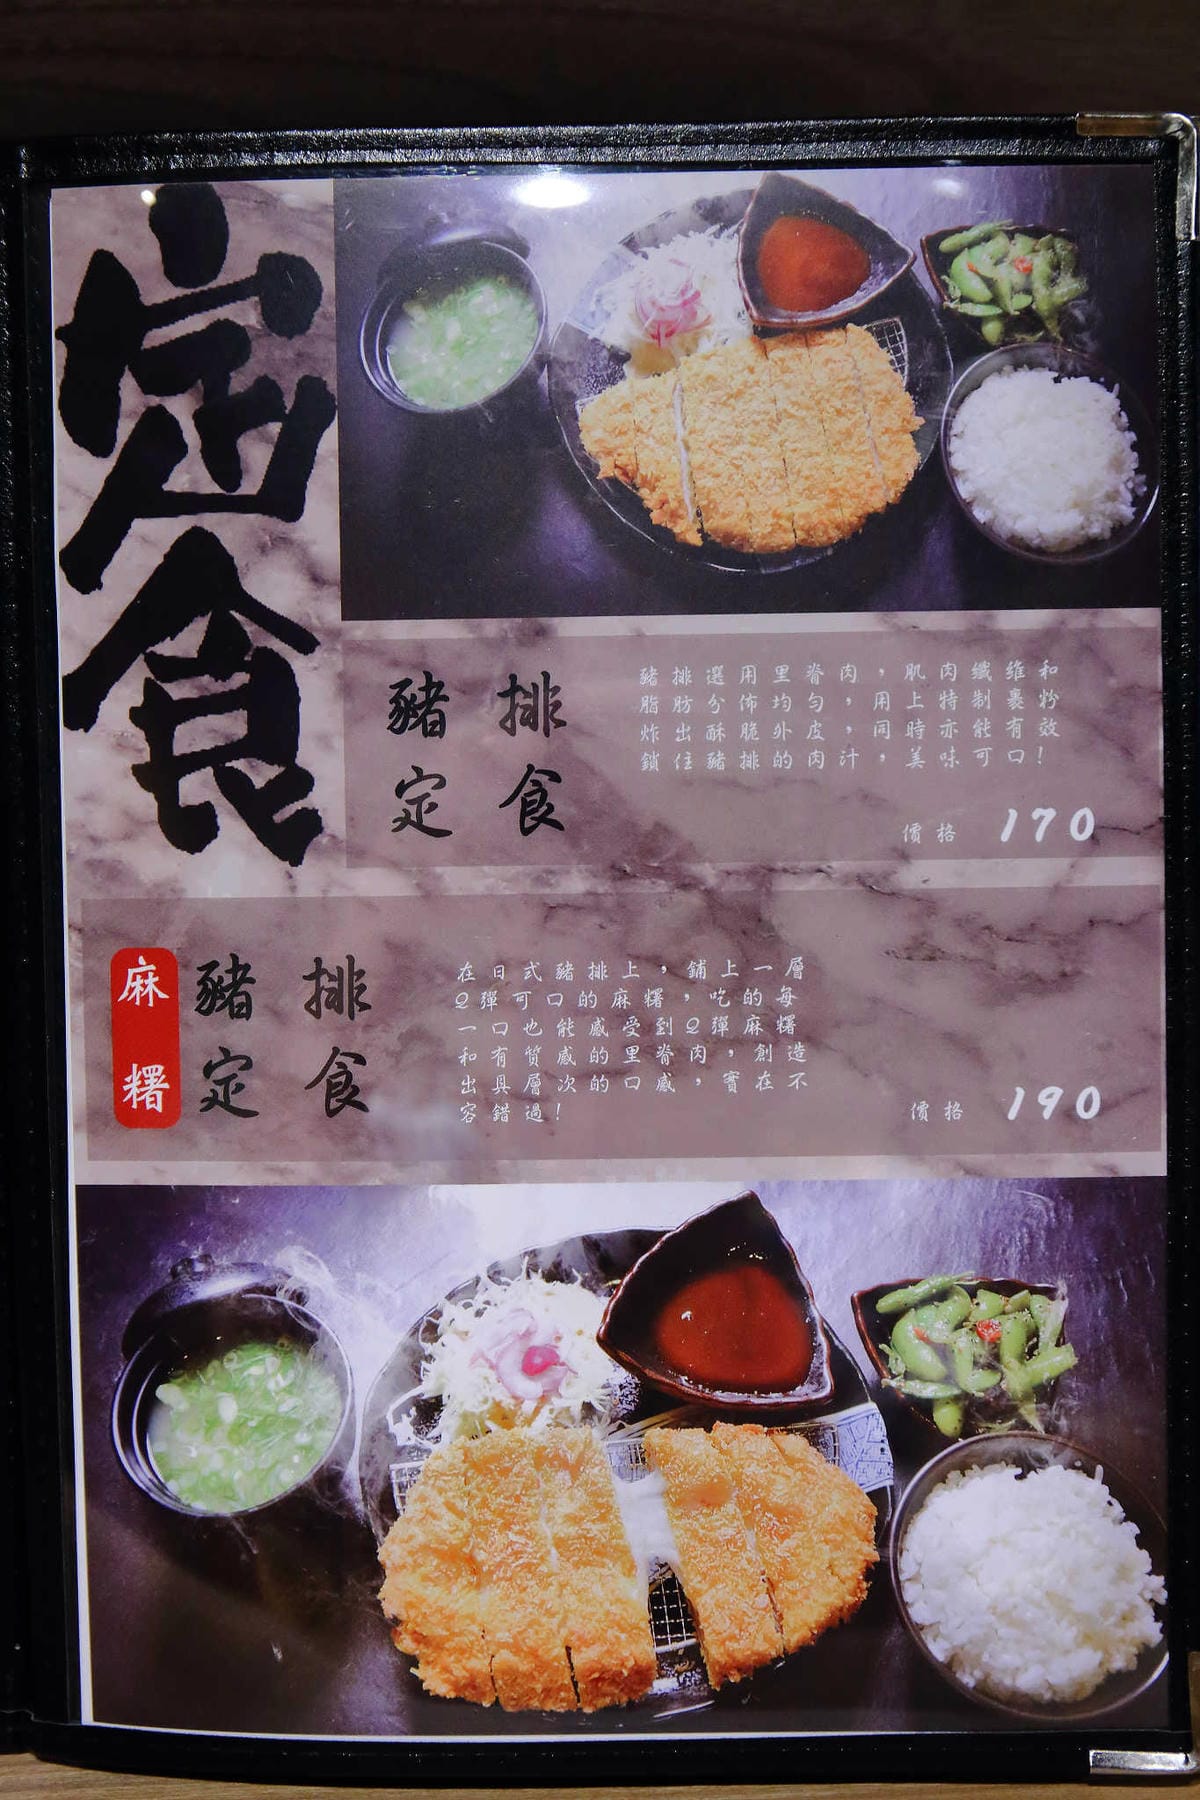 定食
豬排
定食
豬排選用里脊肉，肌肉纖維和
脂肪分佈均勻，用上特制裹粉
炸出酥脆外皮，同時亦能有效
鎖住豬排的肉汁，美味可口！
價格 170
麻糬
豬排
定食
在日式豬排上，鋪上一層
Q彈可口的麻糬，吃的每
一口也能感受到Q彈麻糬
和有質感的里脊肉，創造
出具層次的口感，實在不
容錯過！
價格 190